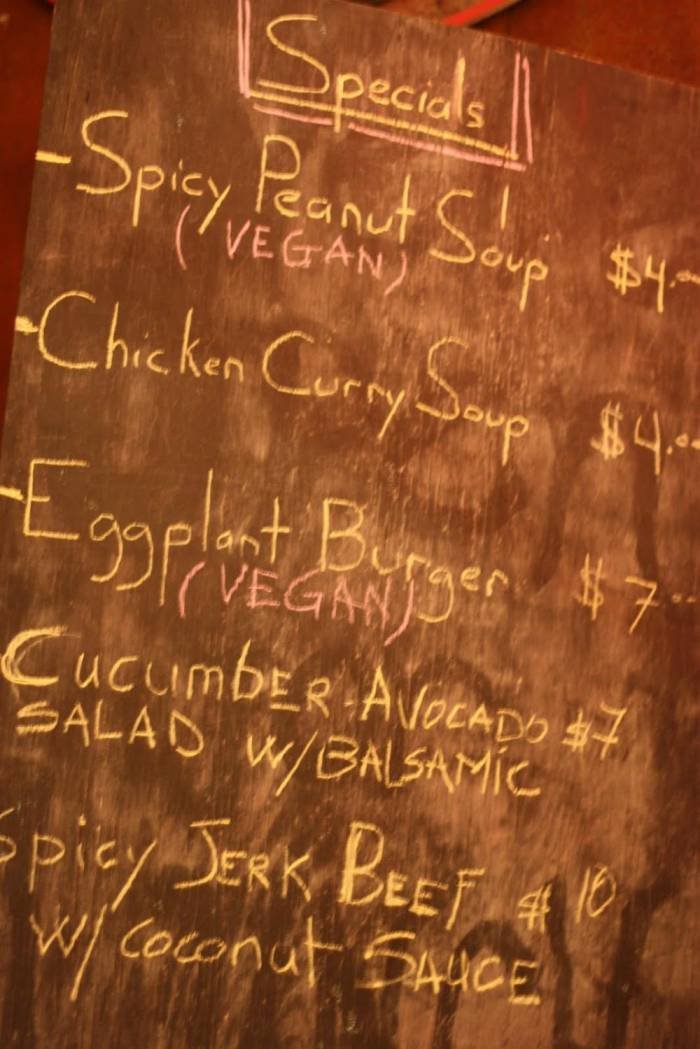 Specials
- Spicy Peanut Soup $4.00
(VEGAN)
- Chicken Curry Soup $4.00
- Eggplant Burger $7.00
(VEGAN)
CucumbER-AVOCADO $7
SALAD W/BALSAMiC
Spicy JERK BEEF $10
W/ coconut SAUCE